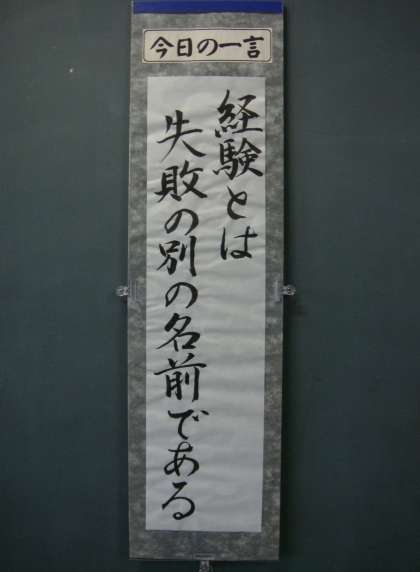 今日の一言
経験とは
失敗の別の名前である